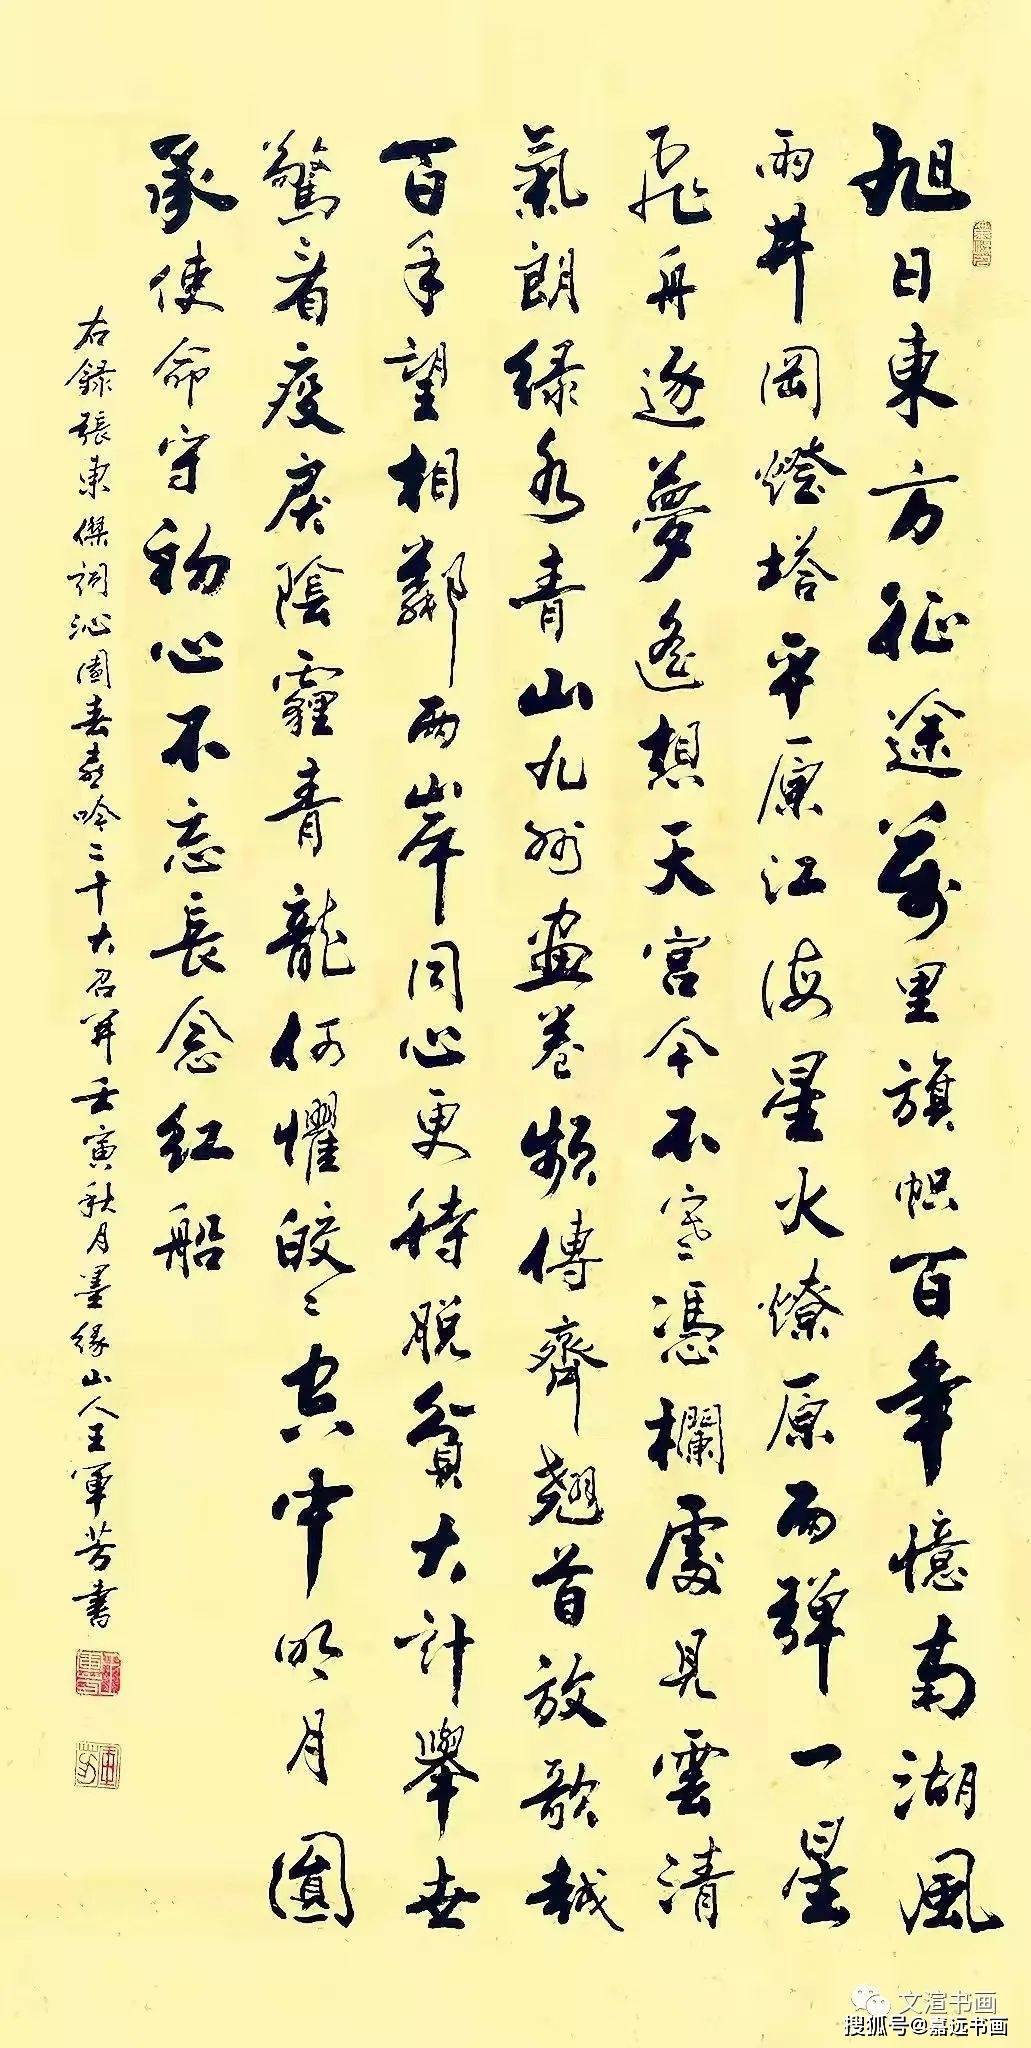 旭日東方征途萬里旗幟百年憶南湖風
雨井岡燈塔平原江海星火燎原兩彈一星
飛舟逐夢遙想天宮今不寒憑欄處見雲清
氣朗绿水青山九州畫卷頻傳齊翹首放歌越
百年望相鄰兩岸同心更待脱貧大計舉世
驚看疫戾陰霾青龍何懼皎〻空中明月圓
承使命守初心不忘長念红船
右錄張東傑詞沁園春喜吟二十大召開壬寅秋月墨緣山人王軍芳書
文渲书画
搜狐号@嘉远书画